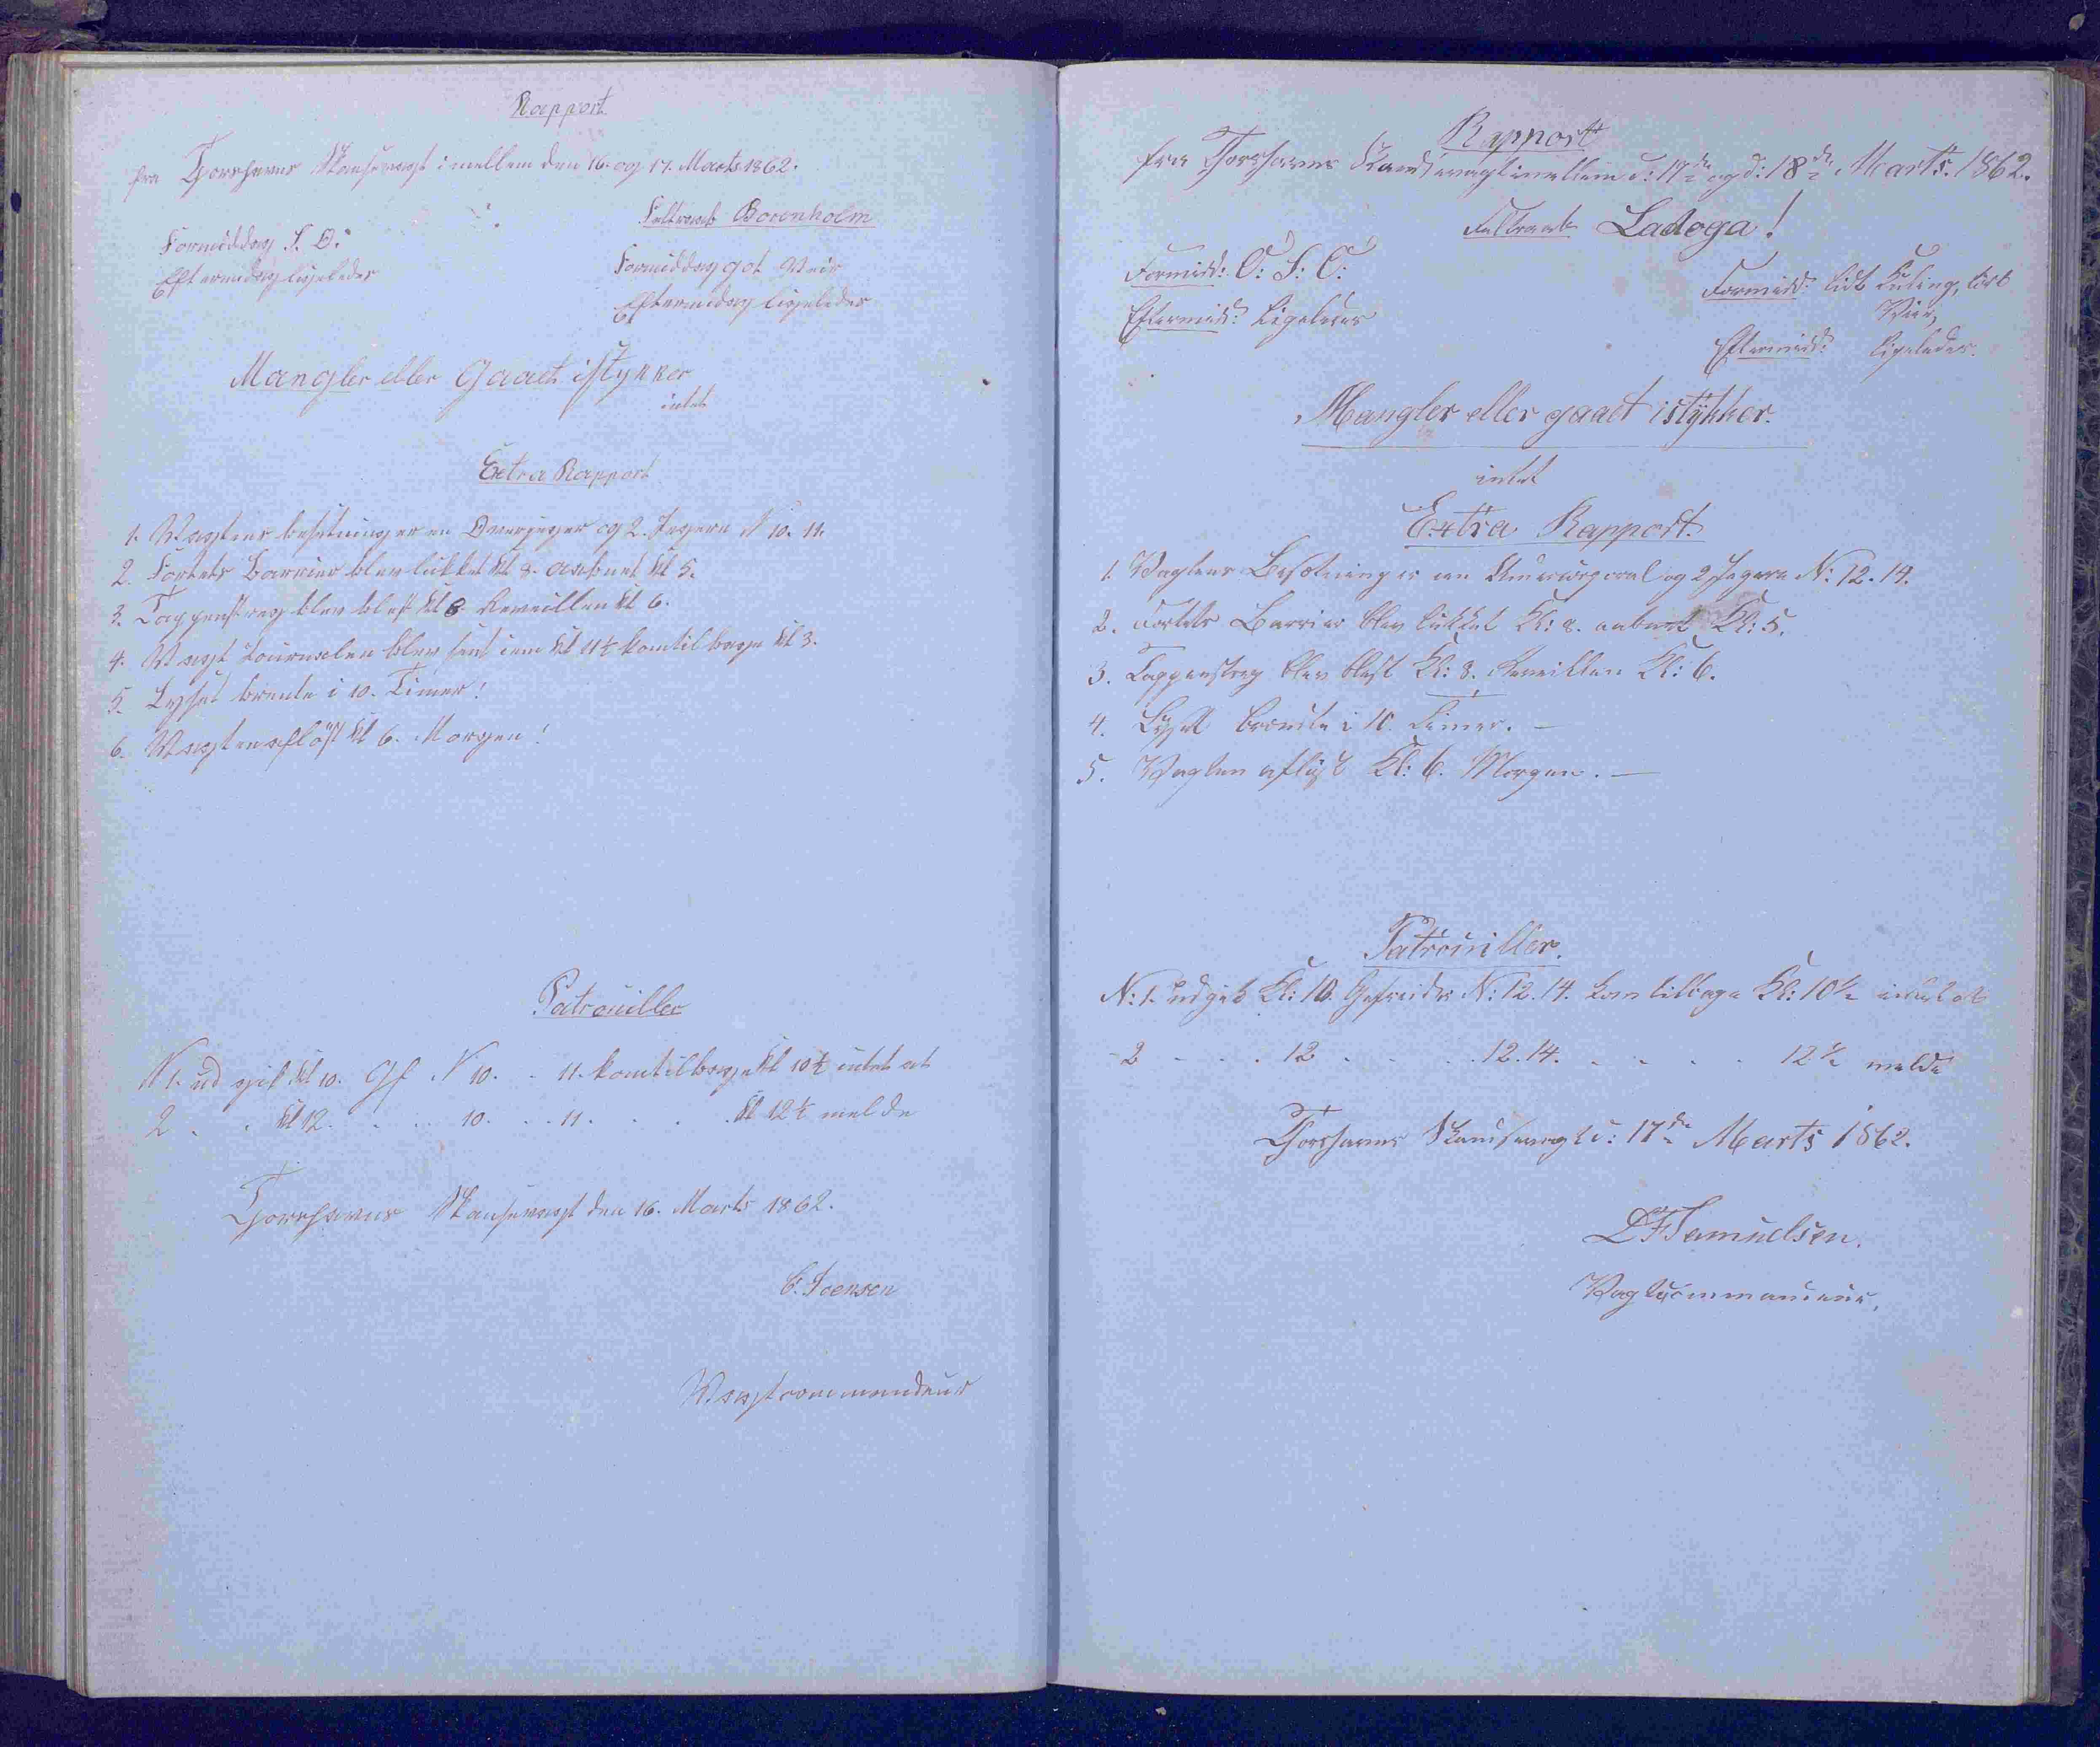 Rapport
fra Thorshavns Skansevagt imellem den 16. og 17. Marts 1862.
Feltraab Borenholm
Formiddag S. O.
Eftermidag ligeledes
Formiddag got Veir
Eftermidag ligeledes
Mangler eller Gaaet istykker
intet
Extra Rapport
1. Vagtens besetning er en Overjeger og 2. Jegere N 10. 11.
2. Fortets Barrier blev lukket Kl 8. aabnet Kl 5.
3. Tappenstreg blev blest Kl 8. Reveillen Kl 6.
4. Vagt Journalen blev sent ind Kl 11½ kom tilbage Kl 3.
5. Lyset brente i 10. Timer!
6. Vagten afløst Kl 6. Morgen!
Patrouiller
N 1. ud gik Kl 10. Gf N 10. . 11. kom tilbage Kl 10½ intet at
2 . . Kl 12. . . . 10. . . 11. . . . . Kl 12½ melde
Thorshavns Skansevagt den 16. Marts 1862.
C. Joensen
Vagtcommandeur
Rapport
fra Thorshavns Skandsevagt imellem d: 17de og d: 18de Marts. 1862.
Feltraab Ladoga!
Formidd: O: S: O:
Eftermidd: Ligeledes
Formidd: lidt Kuling,
Veir,
Eftermidd: ligeledes.
Mangler eller gaaet istykker.
intet
Extra Rapport.
1. Vagtens Besætning er en Undercorporal og 2 Jegere N: 12. 14.
2. Fortets Barrier blev lukket Kl: 8. aabnet Kl: 5.
3. Tappenstreg blev blest Kl: 8. Reveillen Kl: 6.
4. Lyset brændte i 10 Timer. —
5. Vagten afløst Kl: 6. Morgen. —
Patrouiller.
N: 1. udgik Kl: 10. Gefreider N: 12. 14. kom tilbage Kl: 10½ intet at
2 - - . 12 . . . 12. 14. . . . . 12½ melde
Thorshavns Skandsevagt d: 17de Marts 1862.
Samuelsen.
Vagtcommandeur.